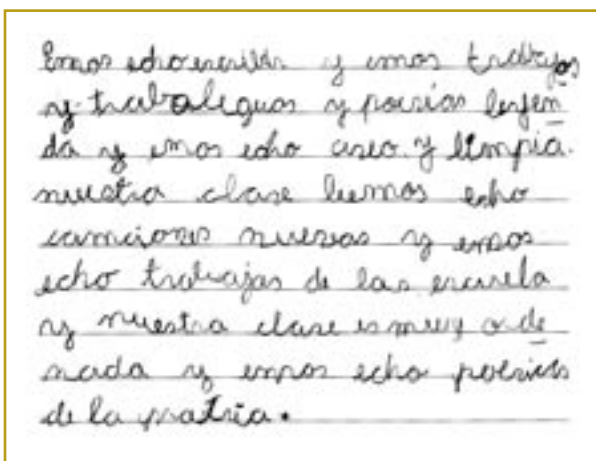 Emos echo escribir y emos trabajos
y trabaleguas y poesías leyen
da y emos echo aseo y limpia.
nuestra clase hemos echo
camciones nuevas y emos
echo trabajas de las escuela
y nuestra clase es muy orde
nada y emos echo poesias
de la patria.